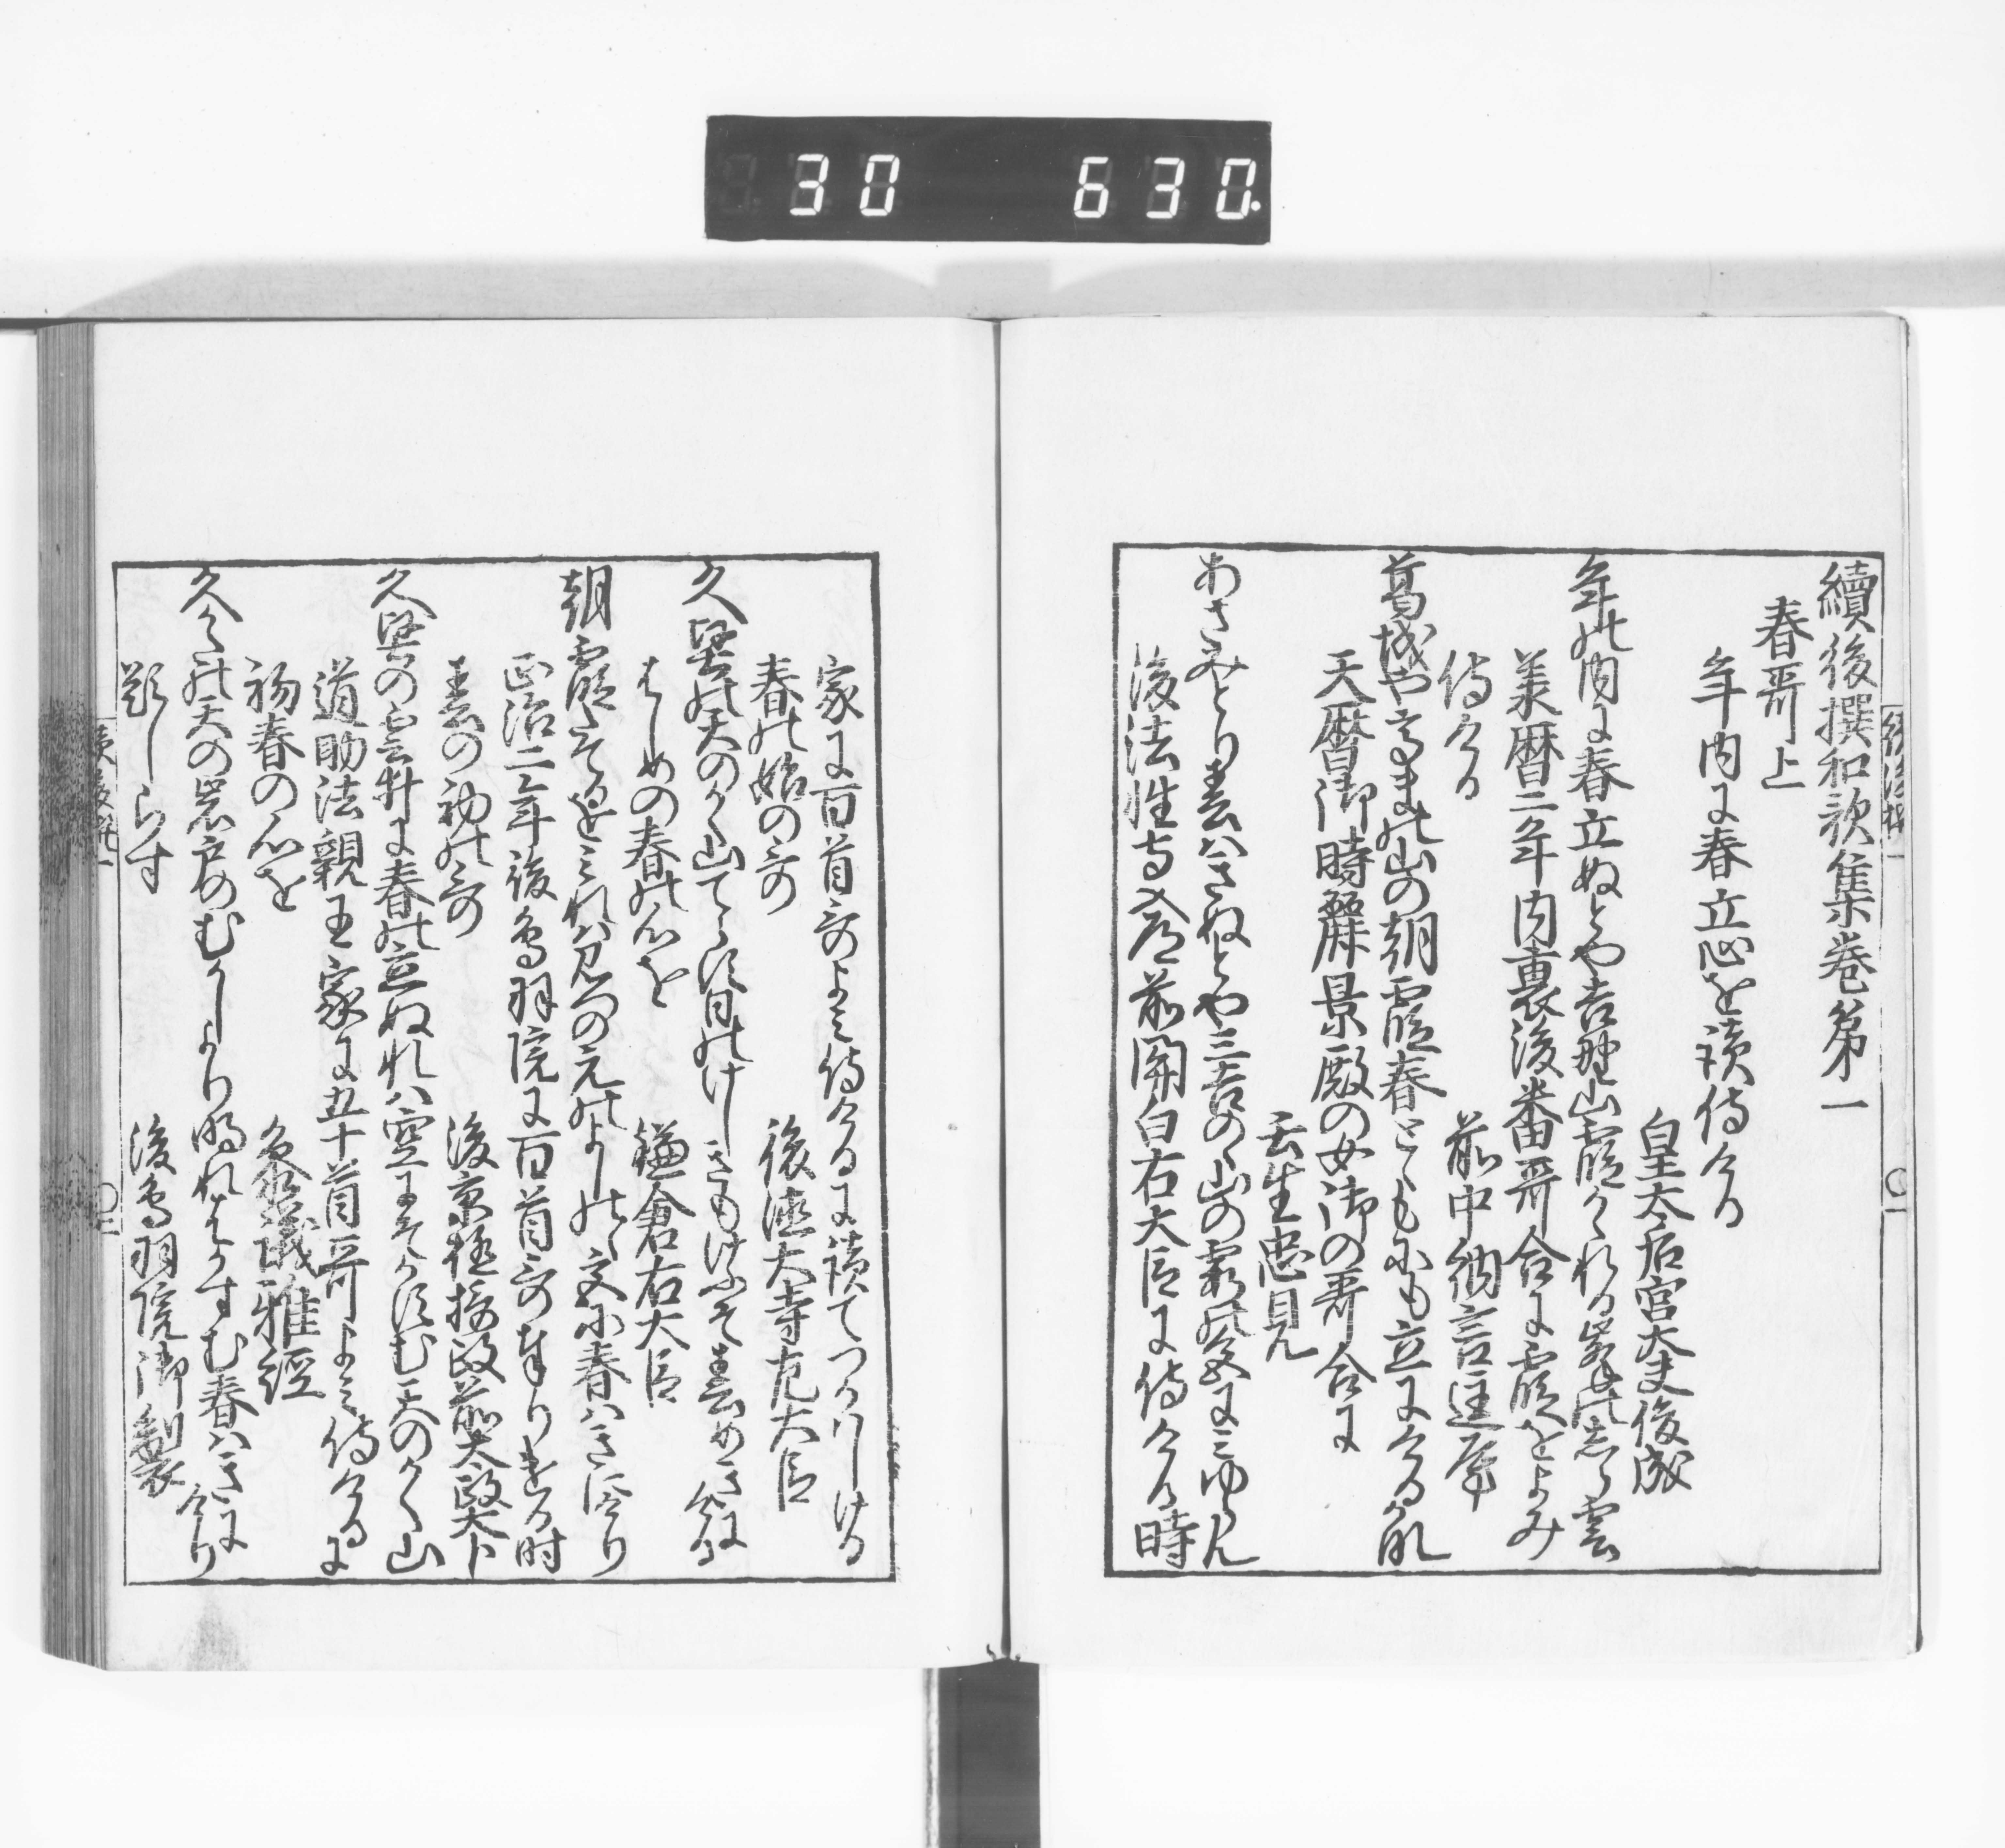 30 630
續後撰和歌集巻第一
春哥上
年内に春立心を讀侍ける
皇太后宮大夫俊成
年の内に春立ぬとや吉野山霞かゝれる峯のしら雲
承暦二年内裏後番哥合に霞をよみ
侍ける
前中納言匡房
葛城や高まの山の朝霞春とゝもにも立にける哉
天暦御時麗景殿の女御の哥合に
壬生忠見
あさみとり春はきぬとやみ吉のゝ山の霞の色にみゆらん
後法性寺入道前関白右大臣に侍ける時
家に百首哥よみ侍けるに讀てつかはしける
春の始の哥
後徳大寺左大臣
久堅の天のかく山てらす日のけしきもけふそ春めきにける
はしめの春の心を
鎌倉右大臣
朝霞たてるをみれは水のえの吉野の宮に春はきにけり
正治二年後鳥羽院に百首哥奉りける時
春の初の哥
後京極摂政前太政大臣
久堅の雲井に春の立ぬれは空にそかすむ天のかく山
道助法親王家に五十首哥よみ侍けるに
初春の心を
参議雅経
久かたの天の岩戸のむかしより明れはかすむ春はきにけり
題しらす
後鳥羽院御製